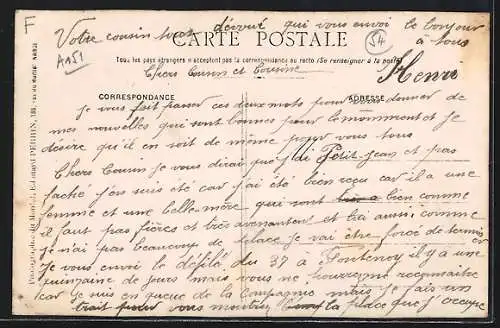 F
Votre cousin tout dévoué qui vous envoi le bonjour
à tous
A151
54
CARTE POSTALE
Tous les pays étrangers n'acceptent pas la correspondance au recto (Se renseigner à la poste)
Henri
Chers Cousin et Cousine
CORRESPONDANCE
ADRESSE
Je vous fait passer ces deux mots pour vous donner de
mes nouvelles qui sont bonnes pour le momment et je
désire qu'il en soit de même pour vous tous
Chers Cousin Je vous dirai que j'ai Petit-Jean et pas
faché j'en suis été car j'ai été bien reçu car il a une
femme et une belle-mère qui sont bien comme
il faut pas fières et très avenantes et lui aussi comme
je n'ai pas beaucoup de place Je vai être forcé de terminer
Je vous envoi le défilé du 37 à Fontenoy il y a une
quinzaine de jours mais vous ne pourrez reconnaitre
car Je suis en queue de la Compagnie mais Je fais un
trait pour vous montrer la place que J'occupe
Phototypie, Edmond DERBIN